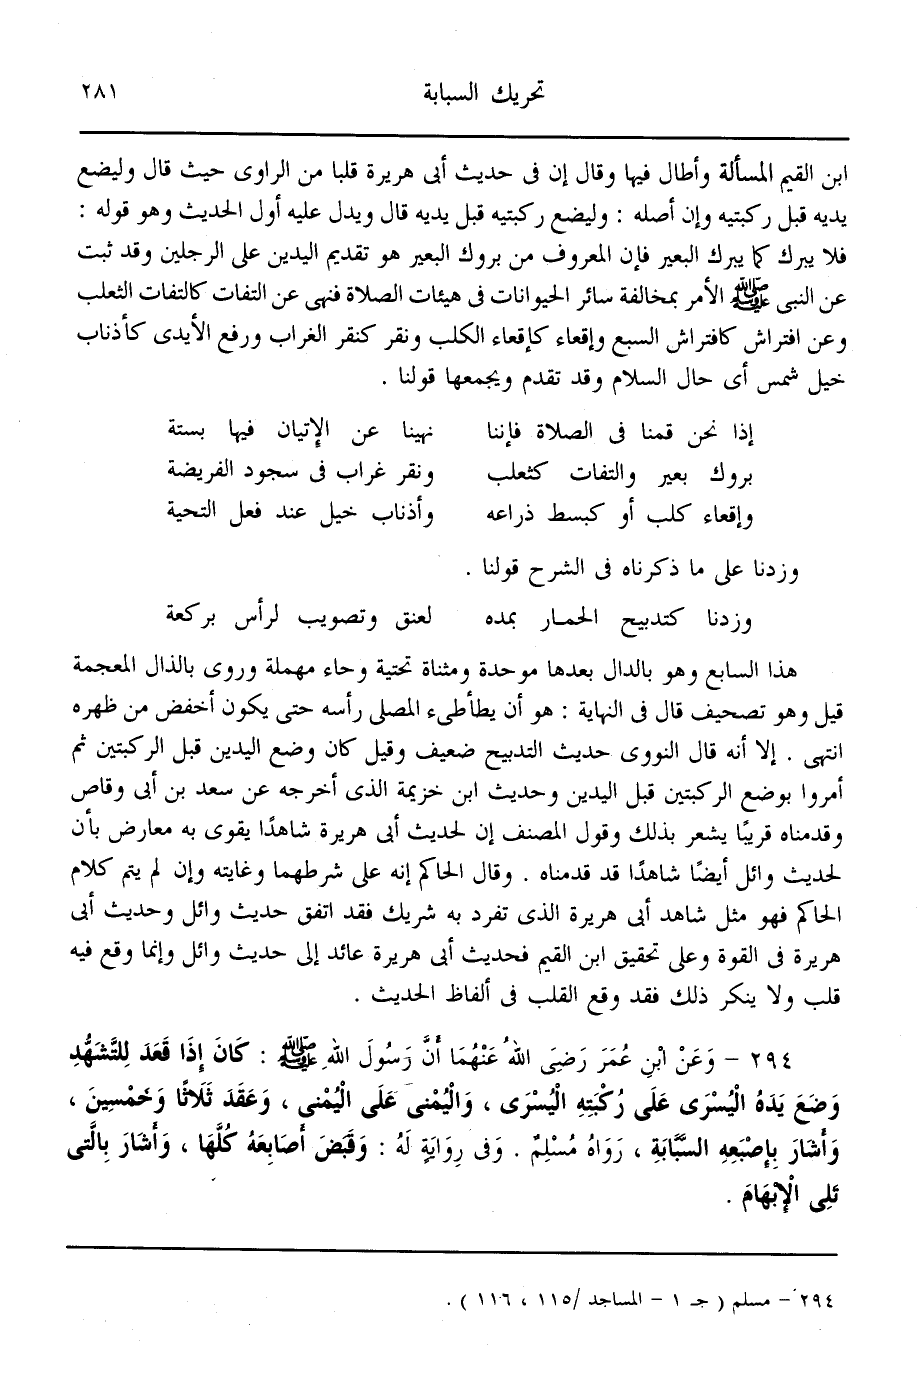 تحريك السبابة ٢٨١
ابن القيم المسألة وأطال فيها وقال إن فى حديث أبى هريرة قلبا من الراوى حيث قال وليضع
يديه قبل ركبتيه وإن أصله : وليضع ركبتيه قبل يديه قال ويدل عليه أول الحديث وهو قوله :
فلا يبرك كما يبرك البعير فإن المعروف من بروك البعير هو تقديم اليدين على الرجلين وقد ثبت
عن النبى ﷺ الأمر بمخالفة سائر الحيوانات فى هيئات الصلاة فنهى عن التفات كالتفات الثعلب
وعن افتراش كافتراش السبع وإقعاء كإقعاء الكلب ونقر كنقر الغراب ورفع الأيدى كأذناب
خيل شمس أى حال السلام وقد تقدم ويجمعها قولنا .
إذا نحن قمنا فى الصلاة فإننا نهينا عن الإتيان فيها بستة
بروك بعير والتفات كثعلب ونقر غراب فى سجود الفريضة
وإقعاء كلب أو كبسط ذراعه وأذناب خيل عند فعل التحية
وزدنا على ما ذكرناه فى الشرح قولنا .
وزدنا كتدبيح الحمار بمده لعنق وتصويب لرأس بركعة
هذا السابع وهو بالدال بعدها موحدة ومثناة تحتية وحاء مهملة وروى بالذال المعجمة
قيل وهو تصحيف قال فى النهاية : هو أن يطأطىء المصلى رأسه حتى يكون أخفض من ظهره
انتهى . إلا أنه قال النووى حديث التدبيح ضعيف وقيل كان وضع اليدين قبل الركبتين ثم
أمروا بوضع الركبتين قبل اليدين وحديث ابن خزيمة الذى أخرجه عن سعد بن أبى وقاص
وقدمناه قريبًا يشعر بذلك وقول المصنف إن لحديث أبى هريرة شاهدًا يقوى به معارض بأن
لحديث وائل أيضًا شاهدًا قد قدمناه . وقال الحاكم إنه على شرطهما وغايته وإن لم يتم كلام
الحاكم فهو مثل شاهد أبى هريرة الذى تفرد به شريك فقد اتفق حديث وائل وحديث أبى
هريرة فى القوة وعلى تحقيق ابن القيم فحديث أبى هريرة عائد إلى حديث وائل وإنما وقع فيه
قلب ولا ينكر ذلك فقد وقع القلب فى ألفاظ الحديث .
٢٩٤ – وَعَنْ ابْنِ عُمَرَ رَضِىَ اللهُ عَنْهُمَا أَنَّ رَسُولَ اللهِ ﷺ : كَانَ إِذَا قَعَدَ لِلتَّشَهُّدِ
وَضَعَ يَدَهُ الْيُسْرَى عَلَى رُكْبَتِهِ الْيُسْرَى ، وَالْيُمْنَى عَلَى الْيُمْنى ، وَعَقَدَ ثَلَاثًا وَخَمْسِينَ ،
وَأَشَارَ بِإِصْبَعِهِ السَّبَّابَةِ ، رَوَاهُ مُسْلِمٌ . وَفى رِوَايَةٍ لَهُ : وَقَبَضَ أَصَابِعَهُ كُلَّهَا ، وَأَشَارَ بِالَّتى
تَلِى الْإِبْهَامَ .
٢٩٤ – مسلم ( جـ ١ – المساجد /١١٥ ، ١١٦ ) .